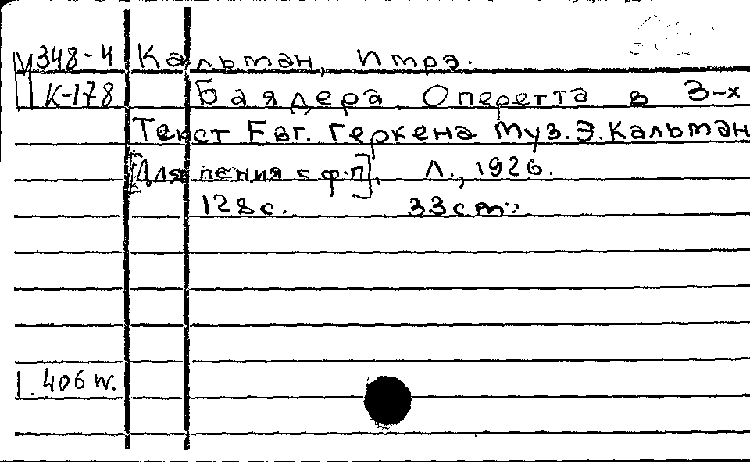 М348-4 Кальман, Имрэ.
К-178 Баядера Оперетта в 3-х
Текст Евг. Геркена Муз. Э. Кальман
[Для пения с ф-п]. Л., 1926.
128с. 33см.
406 н.